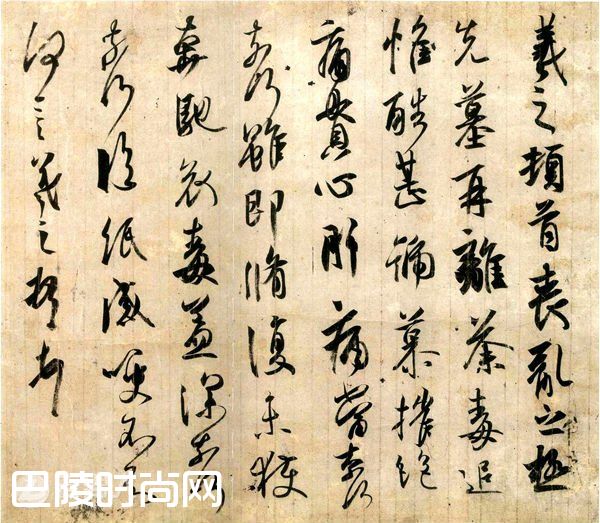 羲之頓首喪亂之極
先墓再離荼毒追
惟酷甚號慕摧絕
痛貫心肝痛當奈何
奈何雖即脩復未獲
奔馳哀毒益深奈何
奈何臨紙感哽不知
何言羲之頓首頓首
巴陵时尚网